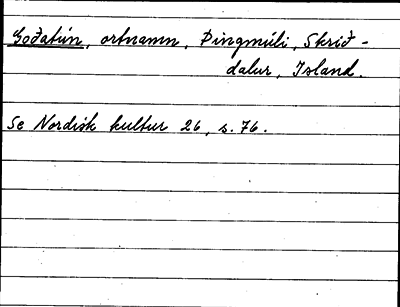 Goðatún, ortnamn, Þingmúli, Skrið-
dalur, Island.
Se Nordisk kultur 26, s. 76.